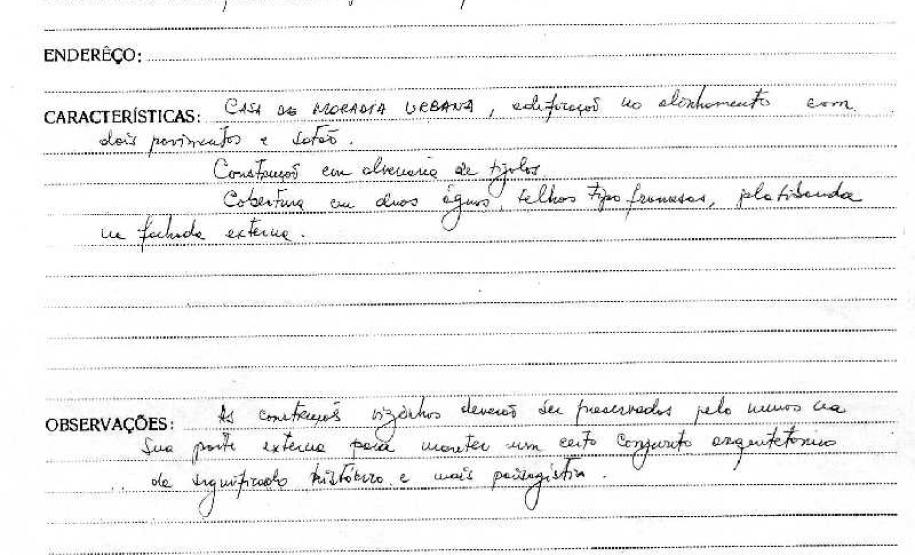 ENDERÊÇO:
CARACTERÍSTICAS: CASA DE MORADIA URBANA, edificação no alinhamento com
dois pavimentos e sotão.
Construção em alvenaria de tijolos
Cobertura em duas águas, telhas tipo francesas, platibanda
na fachada externa.
OBSERVAÇÕES: As construções vizinhas deverão ser preservadas pelo menos na
sua parte externa para manter um certo conjunto arquitetônico
de significado histórico e mais paisagístico.